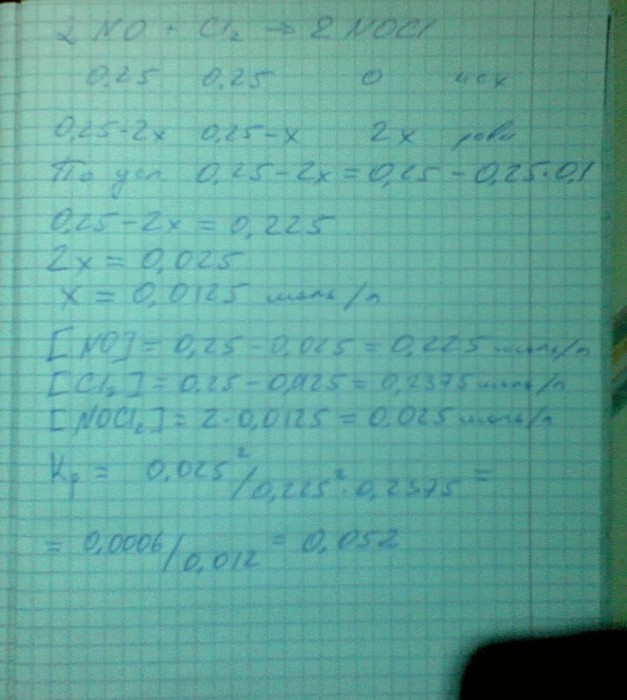 2 NO + Cl₂ → 2 NOCl
0,25 0,25 0 исх
0,25-2x 0,25-x 2x равн
По усл. 0,25-2x = 0,25-0,25·0,1
0,25-2x = 0,225
2x = 0,025
x = 0,0125 моль/л
[NO] = 0,25-0,025 = 0,225 моль/л
[Cl₂] = 0,25-0,0125 = 0,2375 моль/л
[NOCl₂] = 2·0,0125 = 0,025 моль/л
Kp = 0.025²/0,225²·0,2375 =
= 0,0006/0,012 = 0,052